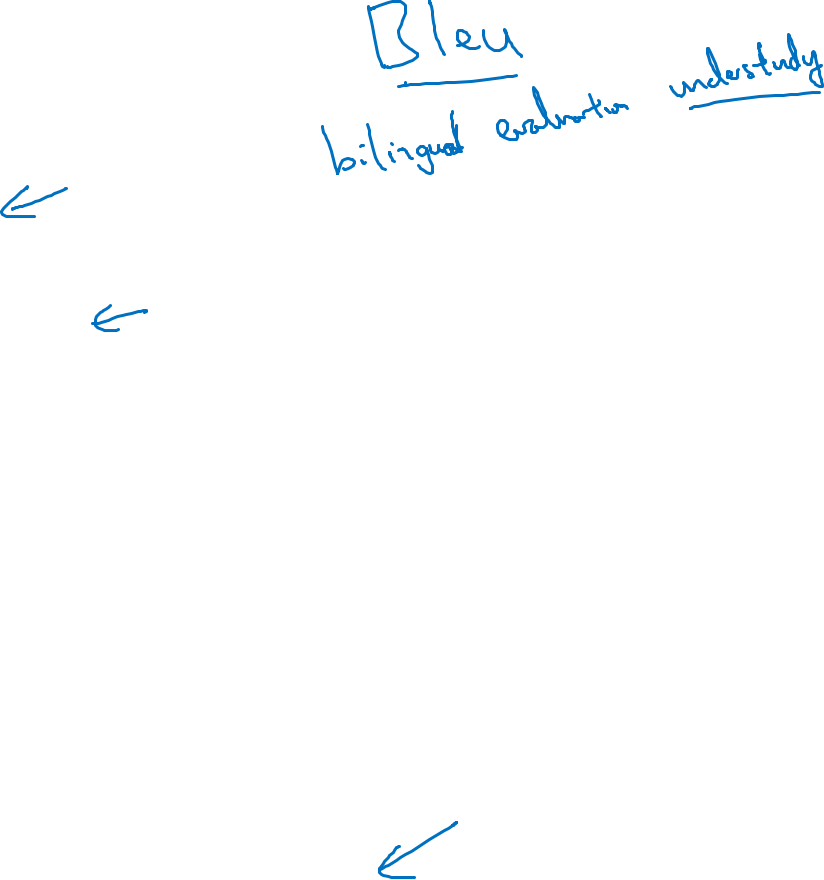 Bleu
bilingual evaluation understudy